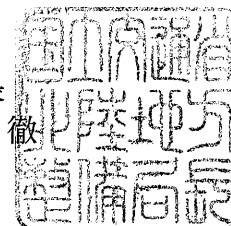 徹
国土交通省
北陸地方
整備局長